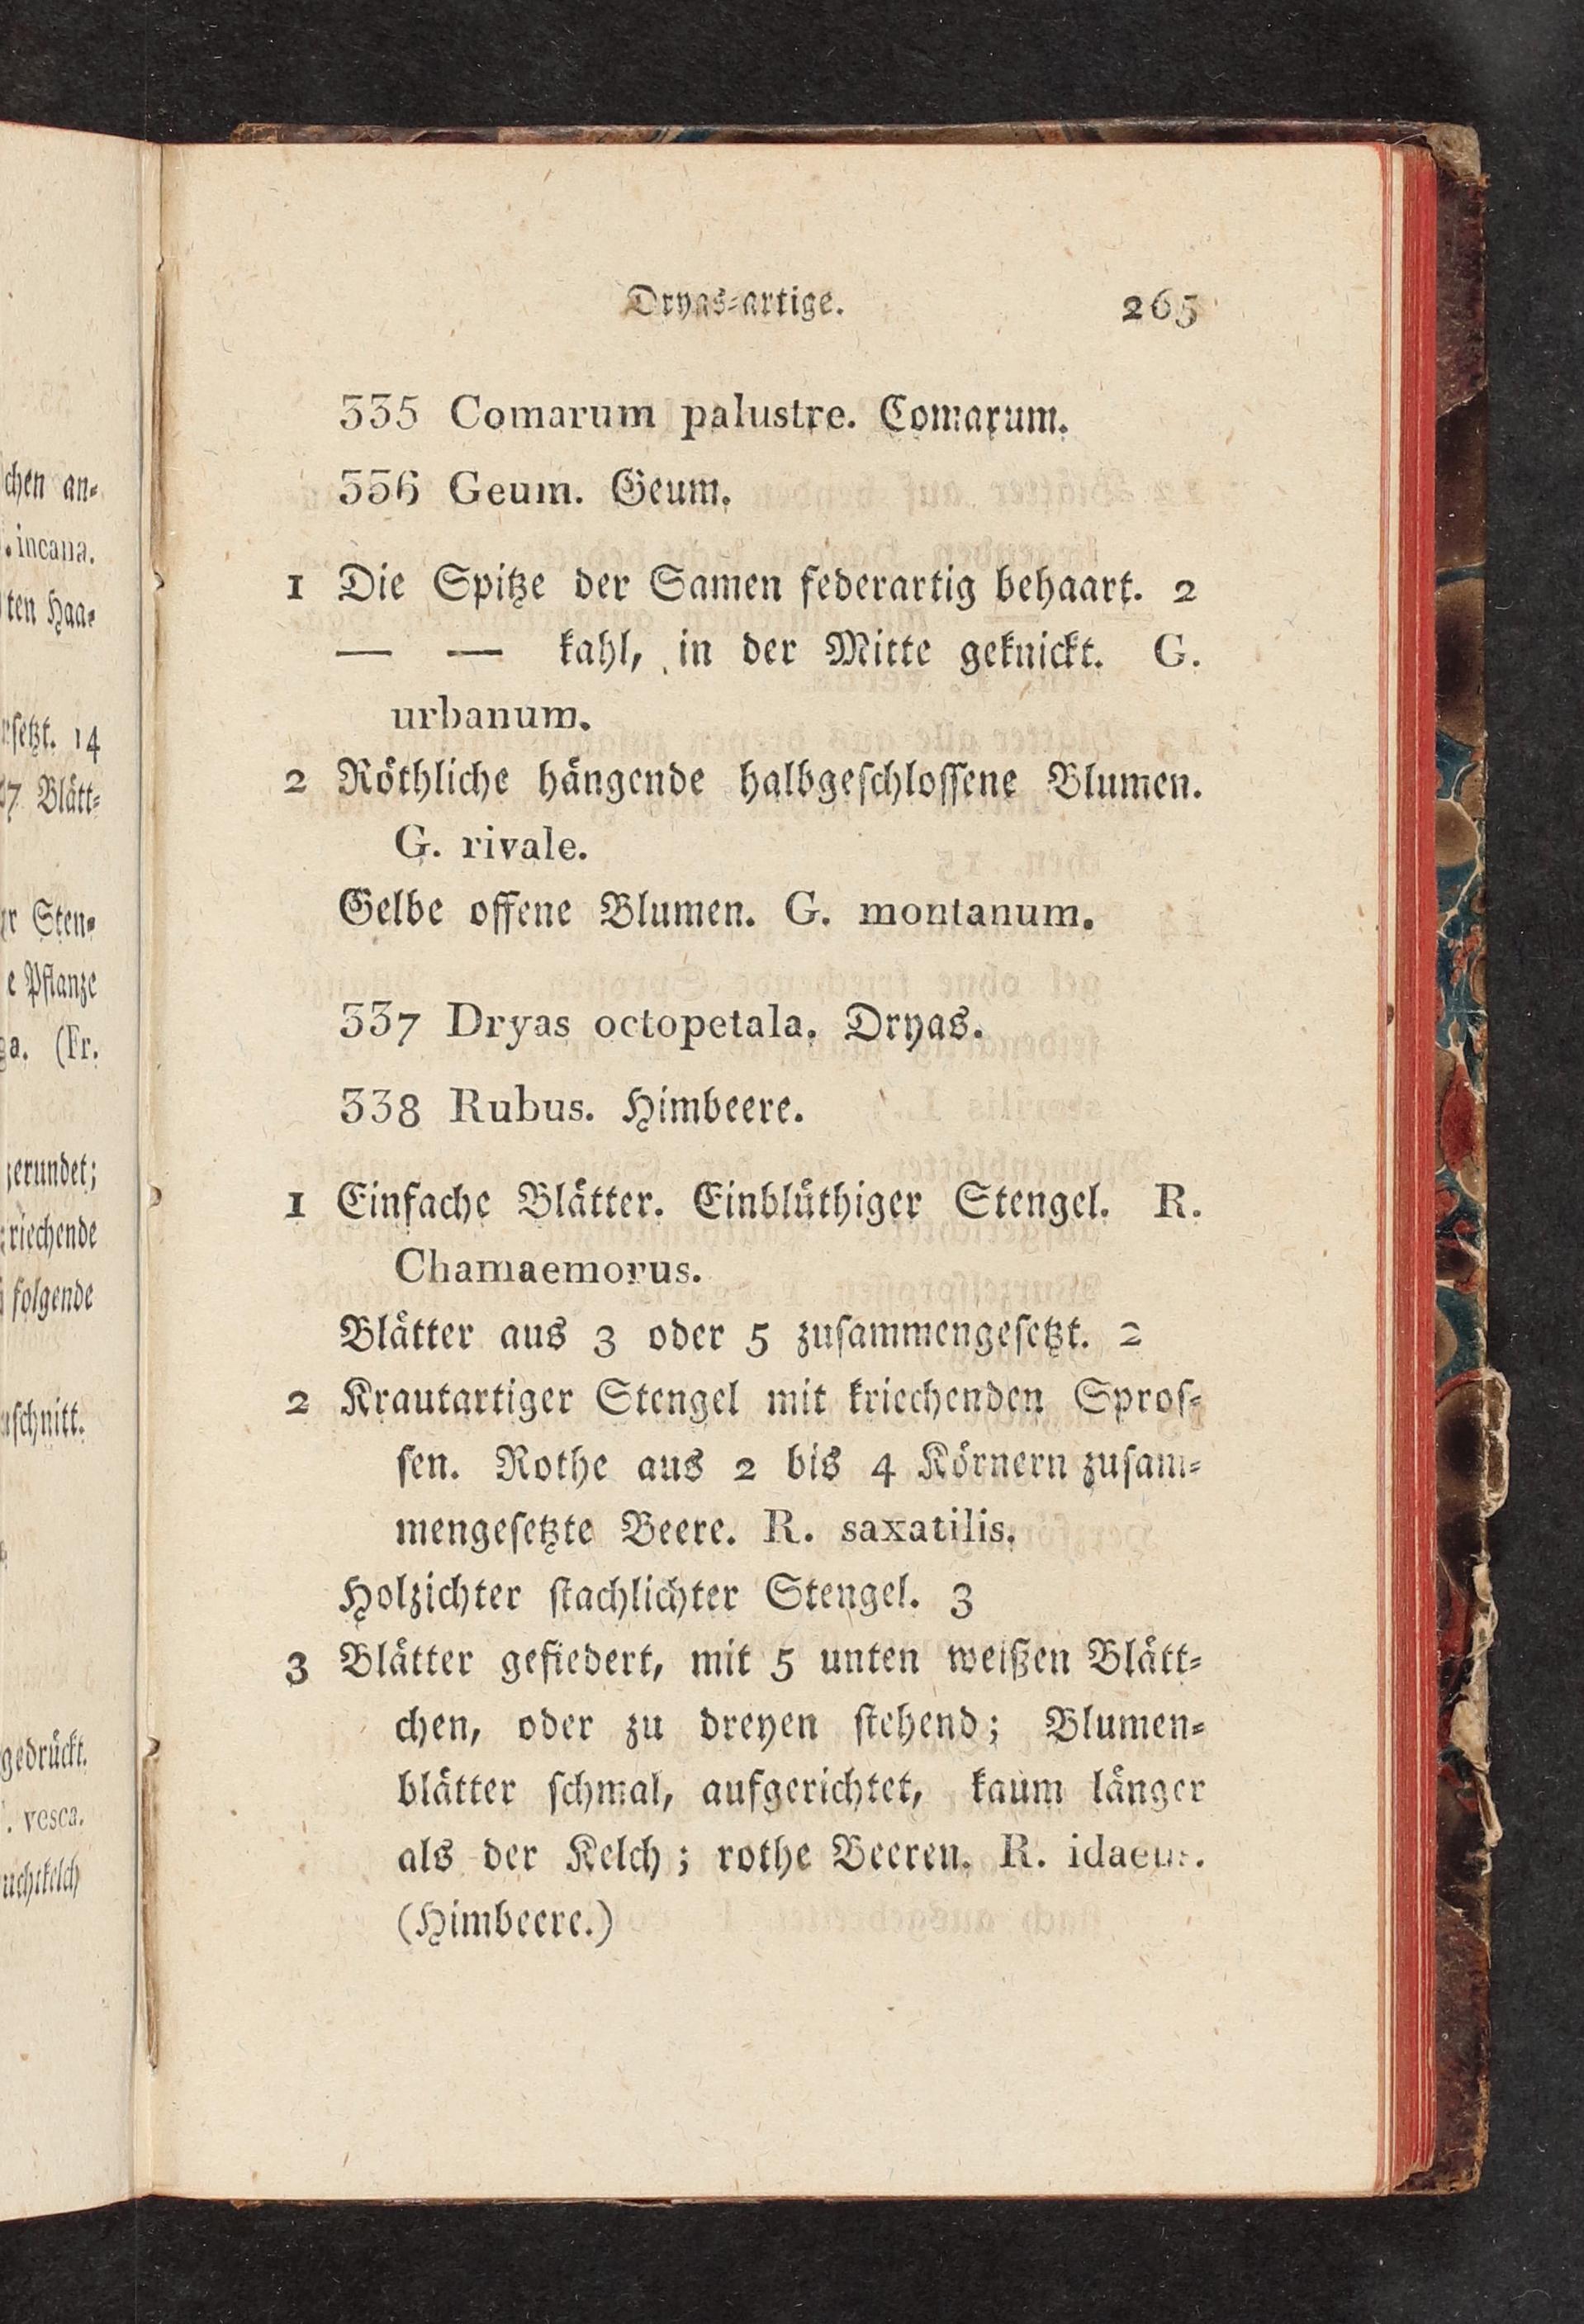 chen an⸗
. incana.
ten Haa⸗
setzt. 14
7 Blätt⸗
Sten⸗
e Pflanze
(Fr.
gerundet;
kriechende
folgende
schnitt.
gedrückt.
vesca.
Dryas⸗artige. 265
335 Comarum palustre. Comarum.
336 Geum. Geum.
1 Die Spitze der Samen federartig behaart. 2
— — kahl, in der Mitte geknickt. G.
urbanum.
2 Röthliche hängende halbgeschlossene Blumen.
G. rivale.
Gelbe offene Blumen. G. montanum.
337 Dryas octopetala. Dryas.
338 Rubus. Himbeere.
1 Einfache Blätter. Einblüthiger Stengel. R.
Chamaemorus.
Blätter aus 3 oder 5 zusammengesetzt. 2
2 Krautartiger Stengel mit kriechenden Spros⸗
sen. Rothe aus 2 bis 4 Körnern zusam⸗
mengesetzte Beere. R. saxatilis.
Holzichter stachlichter Stengel. 3
3 Blätter gefiedert, mit 5 unten weißen Blätt⸗
chen, oder zu dreyen stehend; Blumen⸗
blätter schmal, aufgerichtet, kaum länger
als der Kelch; rothe Beeren. R. idaeus.
(Himbeere.)